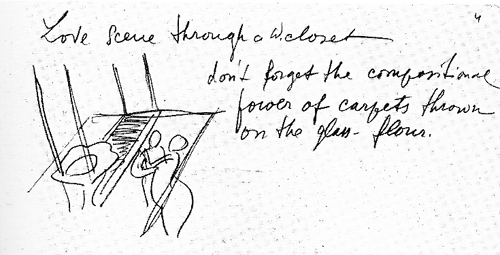 4
Love scene through a W.closet
don't forget the compositional
power of carpets thrown
on the glass-flour.